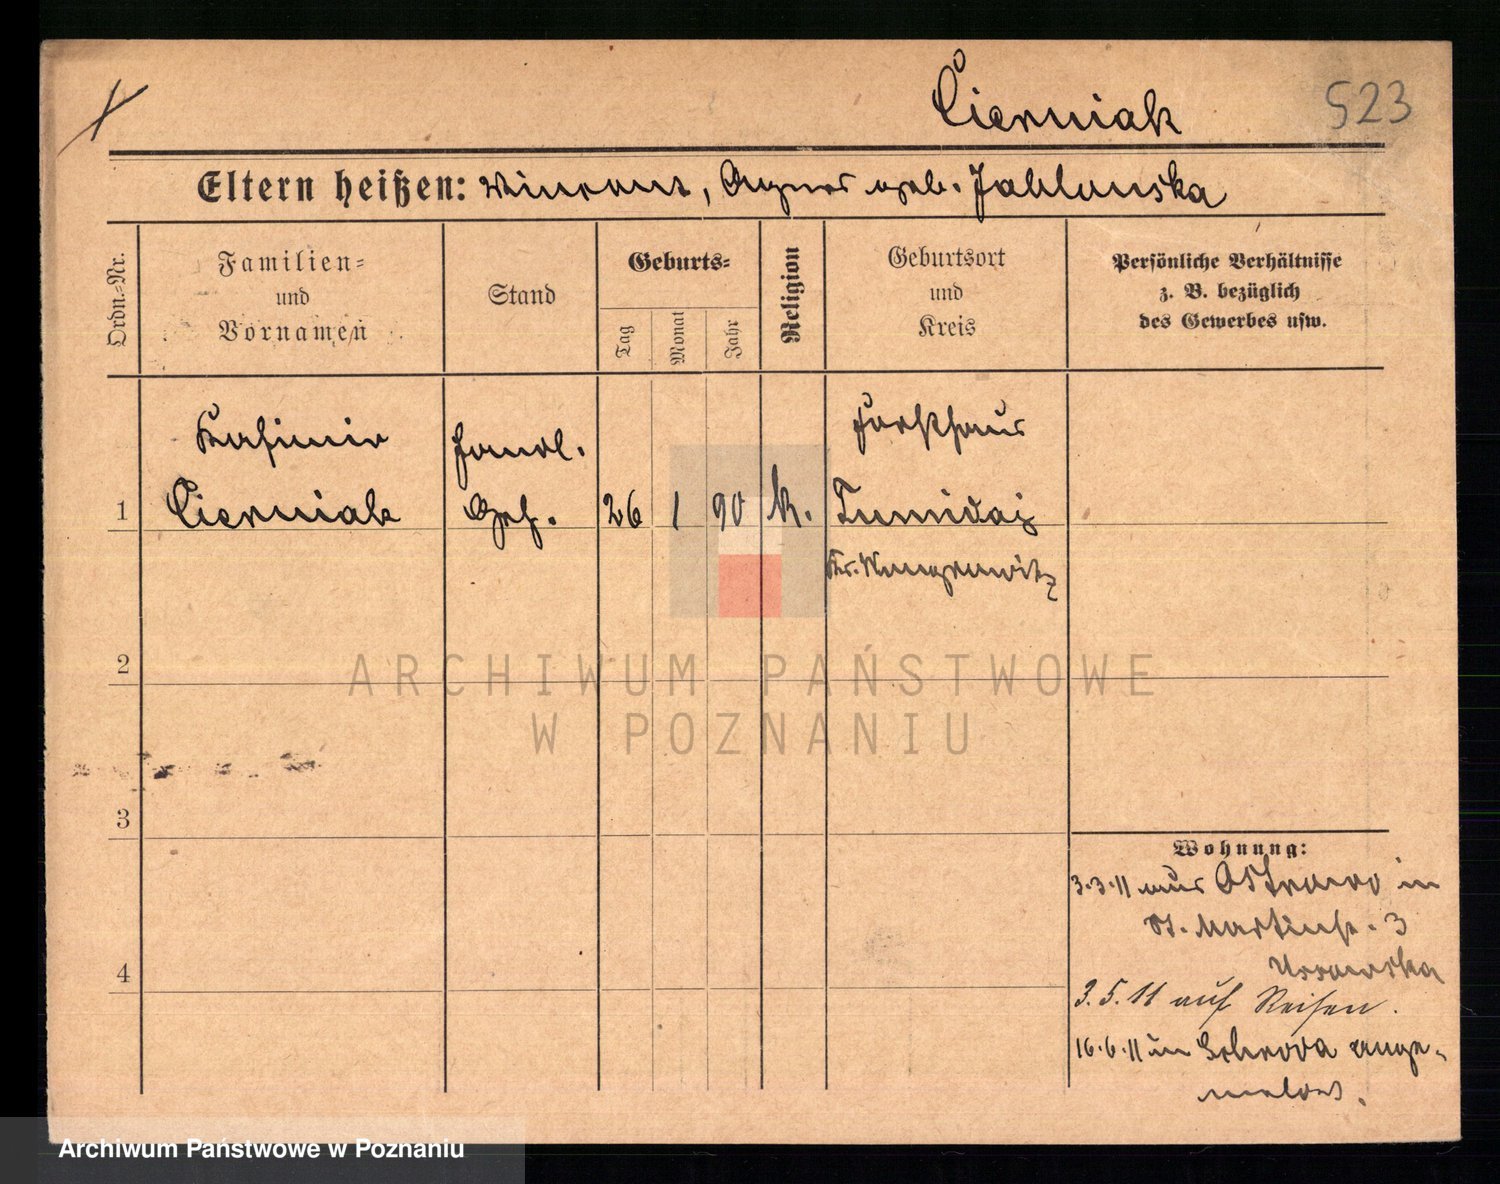 Cierniak
523
Eltern heißen: Vincent, Agnes geb. Jablonska
Ordn.-Nr.
Familien-
und
Vornamen
Stand
Geburts-
Tag
Monat
Jahr
Religion
Geburtsort
und
Kreis
Persönliche Verhältnisse
z. B. bezüglich
des Gewerbes usw.
Kasimir
Cierniak
Handl.
Geh.
1
26
1
90
k.
Forsthaus
Tumidaj
Kr.
2
3
4
Wohnung:
3.3.11 aus Ostrowo in
St. Martinstr. 3
3.5.11 auf Reisen.
16.6.11 in Schroda ange-
meldet.
ARCHIWUM PAŃSTWOWE
W POZNANIU
Archiwum Państwowe w Poznaniu